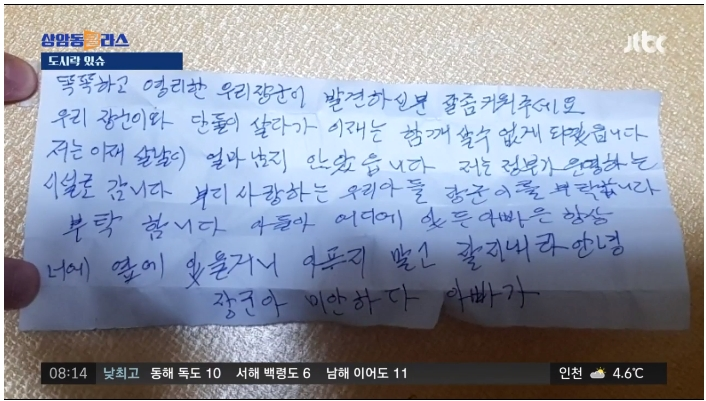 상암동클라스
jtbc
도시락 있슈
똑똑하고 영리한 우리장군이 발견하신분 잘좀키워주세요
우리 장군이와 단둘이 살다가 이재는 함께 살수 없게 되였읍니다
저는 이재 살날이 얼마 남지 안았읍니다 저는 정부가 운영하는
시설로 갑니다 부디 사랑하는 우리아들 장군이를 부탁합니다
부탁 합니다 아들아 어디에 있든 아빠은 항상
너에 옆에 있을거니 아푸지 말고 잘지내라 안녕
장군아 미안하다 아빠가
08:14 낮최고 동해 독도 10 서해 백령도 6 남해 이어도 11 인천 4.6℃